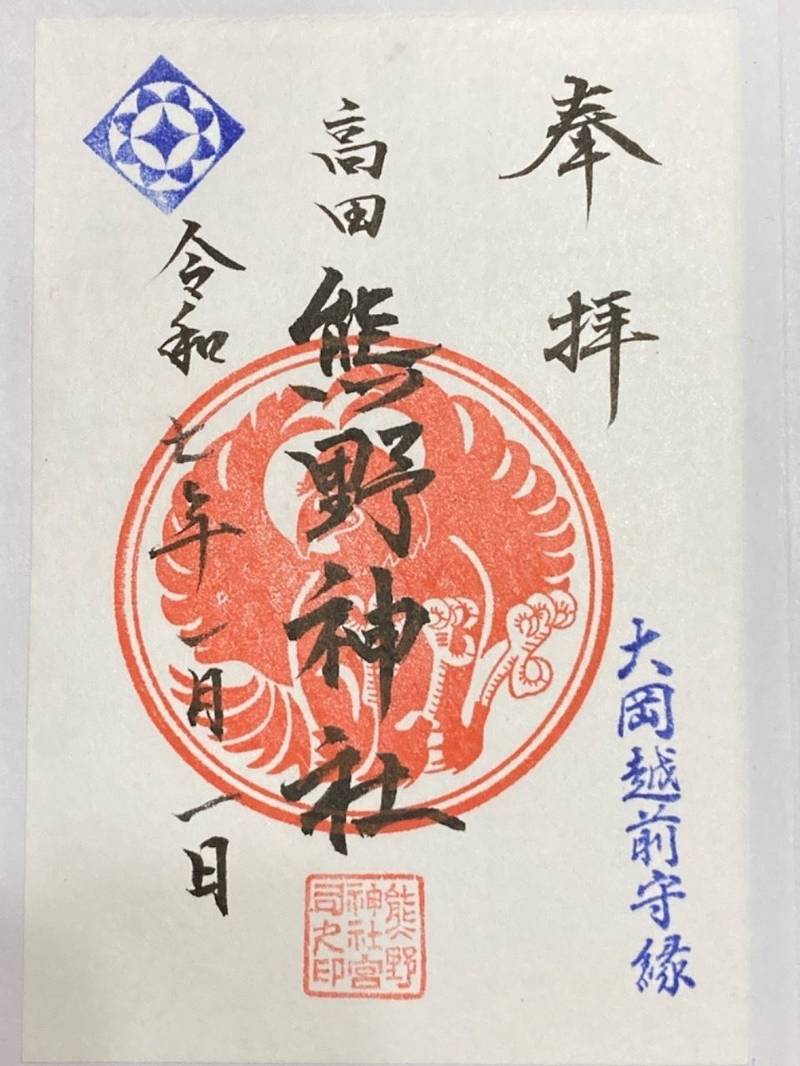 奉拝
大岡越前守縁
高田
熊野神社
令和七年一月一日
熊野
神社宮
司之印